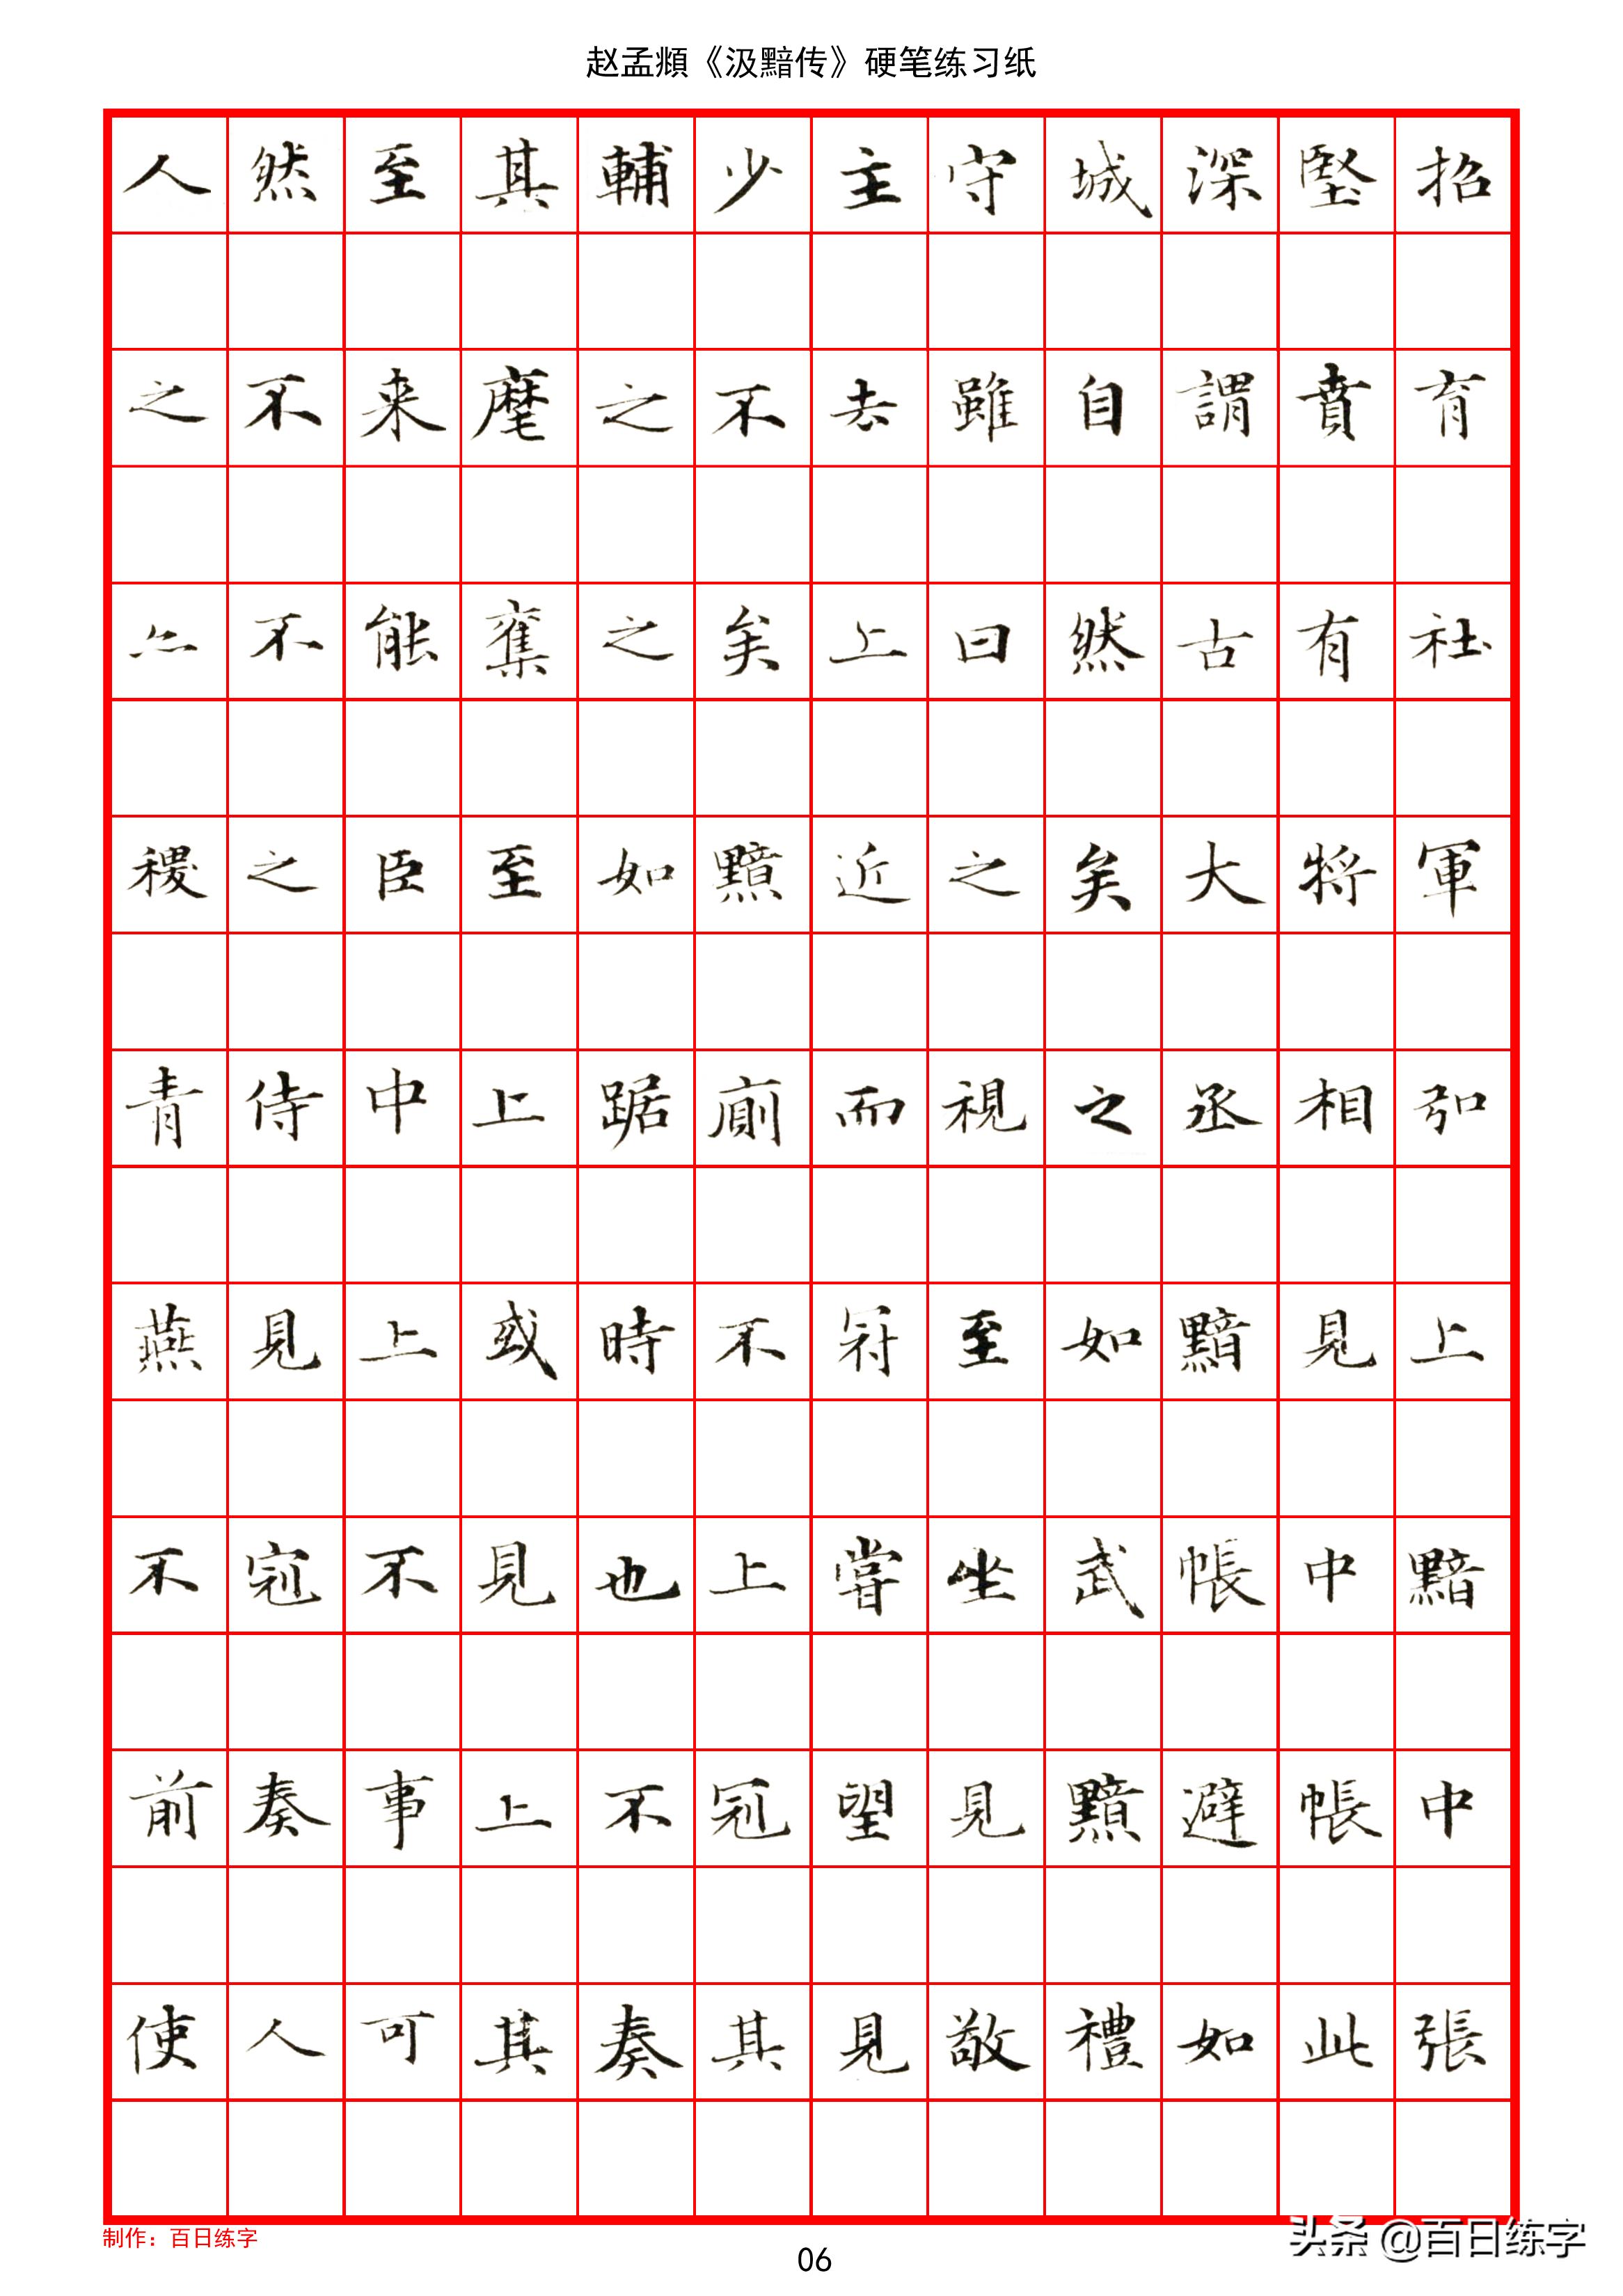 赵孟頫《汲黯传》硬笔练习纸
人然至其輔少主守城深堅招
之不来麾之不去雖自謂賁育
亦不能奪之矣上曰然古有社
稷之臣至如黯近之矣大將軍
青侍中上踞廁而視之丞相弘
燕見上或時不冠至如黯見上
不冠不見也上嘗坐武帳中黯
前奏事上不冠望見黯避帳中
使人可其奏其見敬禮如此張
制作：百日练字
06
头条 @百日练字